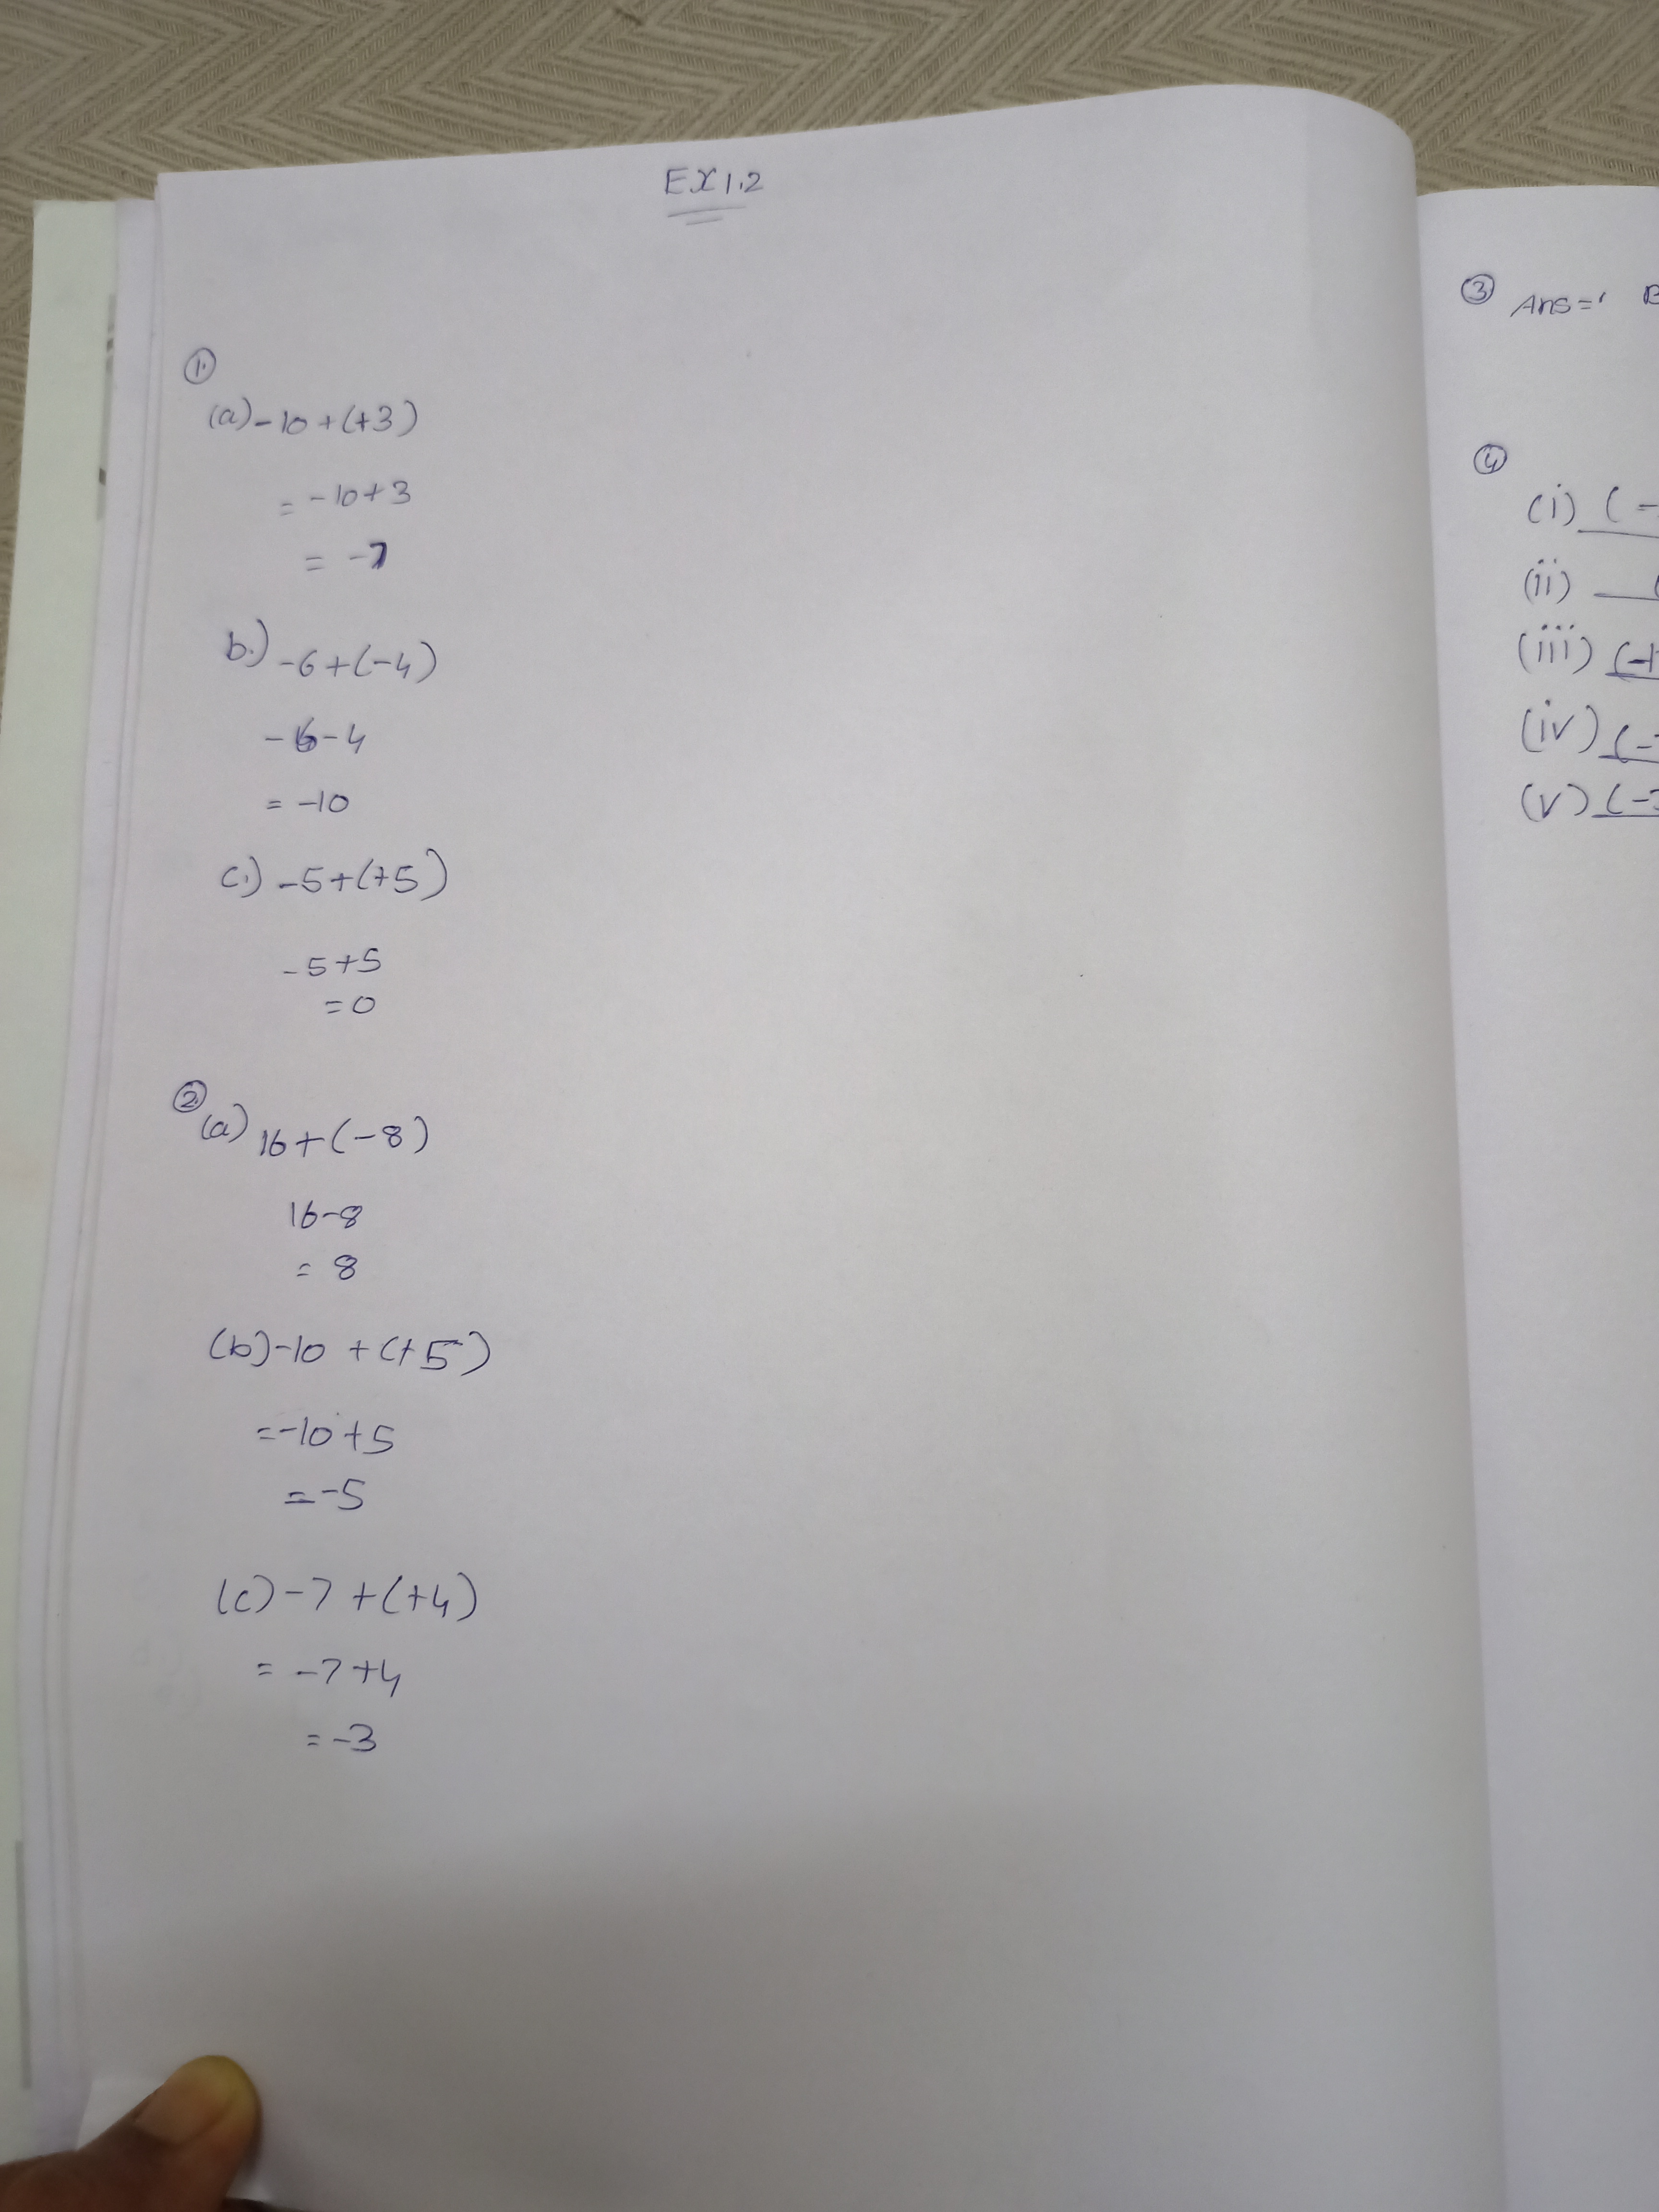 EX 1.2
1.
(a) -10+(+3)
= -10+3
= -7
b.) -6+(-4)
-6-4
= -10
c.) -5+(+5)
-5+5
=0
2.
(a) 16+(-8)
16-8
= 8
(b) -10 +(+5)
=-10+5
=-5
(c) -7 +(+4)
= -7+4
= -3
3 Ans='
4
(i) (-
(ii)
(iii) (-1
(iv) (-
(v) (-